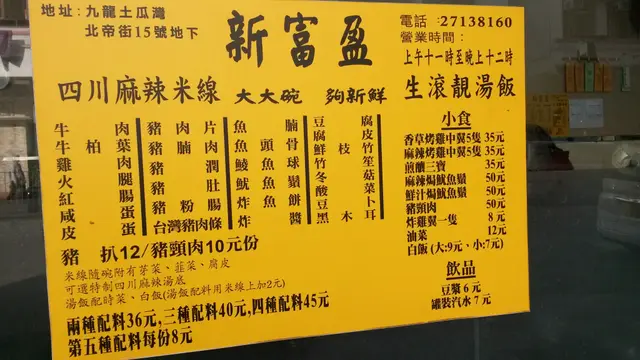 地址：九龍土瓜灣
北帝街15號地下
新富盈
電話：27138160
營業時間：
上午十一時至晚上十二時
四川麻辣米線 大大碗 夠新鮮 生滾靚湯飯
牛肉
牛柏葉
雞肉
火腿
紅腸
咸蛋
皮蛋
豬肉片
豬腩肉
豬潤
豬肚
豬粉腸
台灣豬肉條
魚腩
魚頭骨
鯪魚球
魷魚鬚
炸魚餅
炸醬
豆腐
腐皮
鮮枝竹
竹笙
冬菇
酸菜
豆卜
黑木耳
豬扒12/豬頸肉10元份
米線隨碗附有芽菜、韮菜、腐皮
可選特制四川麻辣湯底
湯飯配時菜、白飯(湯飯配料用米線上加2元)
兩種配料36元,三種配料40元,四種配料45元
第五種配料每份8元
小食
香草烤雞中翼5隻 35元
麻辣烤雞中翼5隻 35元
煎釀三寶 35元
麻辣焗魷魚鬚 50元
鮮汁焗魷魚鬚 50元
豬頸肉 50元
炸雞翼一隻 8元
油菜 12元
白飯 (大:9元、小:7元)
飲品
豆漿 6元
罐裝汽水 7元